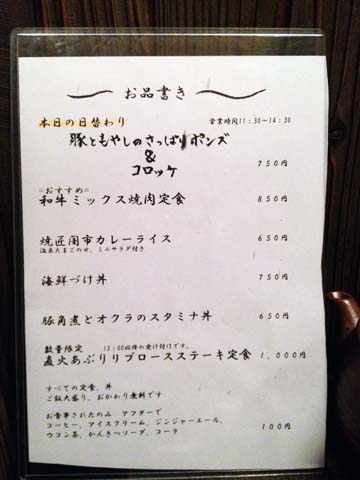 お品書き
本日の日替わり 営業時間11:30~14:30
豚ともやしのさっぱりポンズ
&
コロッケ 750円
=おすすめ=
和牛ミックス焼肉定食 850円
焼匠闇市カレーライス 650円
温泉たまごのせ、ミニサラダ付き
海鮮づけ丼 750円
豚角煮とオクラのスタミナ丼 650円
数量限定 13:00以降の受け付けです。
直火あぶりリブロースステーキ定食 1,000円
すべての定食、丼
ご飯大盛り、おかわり無料です
お食事されたのみ アフターで
コーヒー、アイスクリーム、ジンジャーエール、
ウコン茶、かんきつソーダ、コーラ 100円